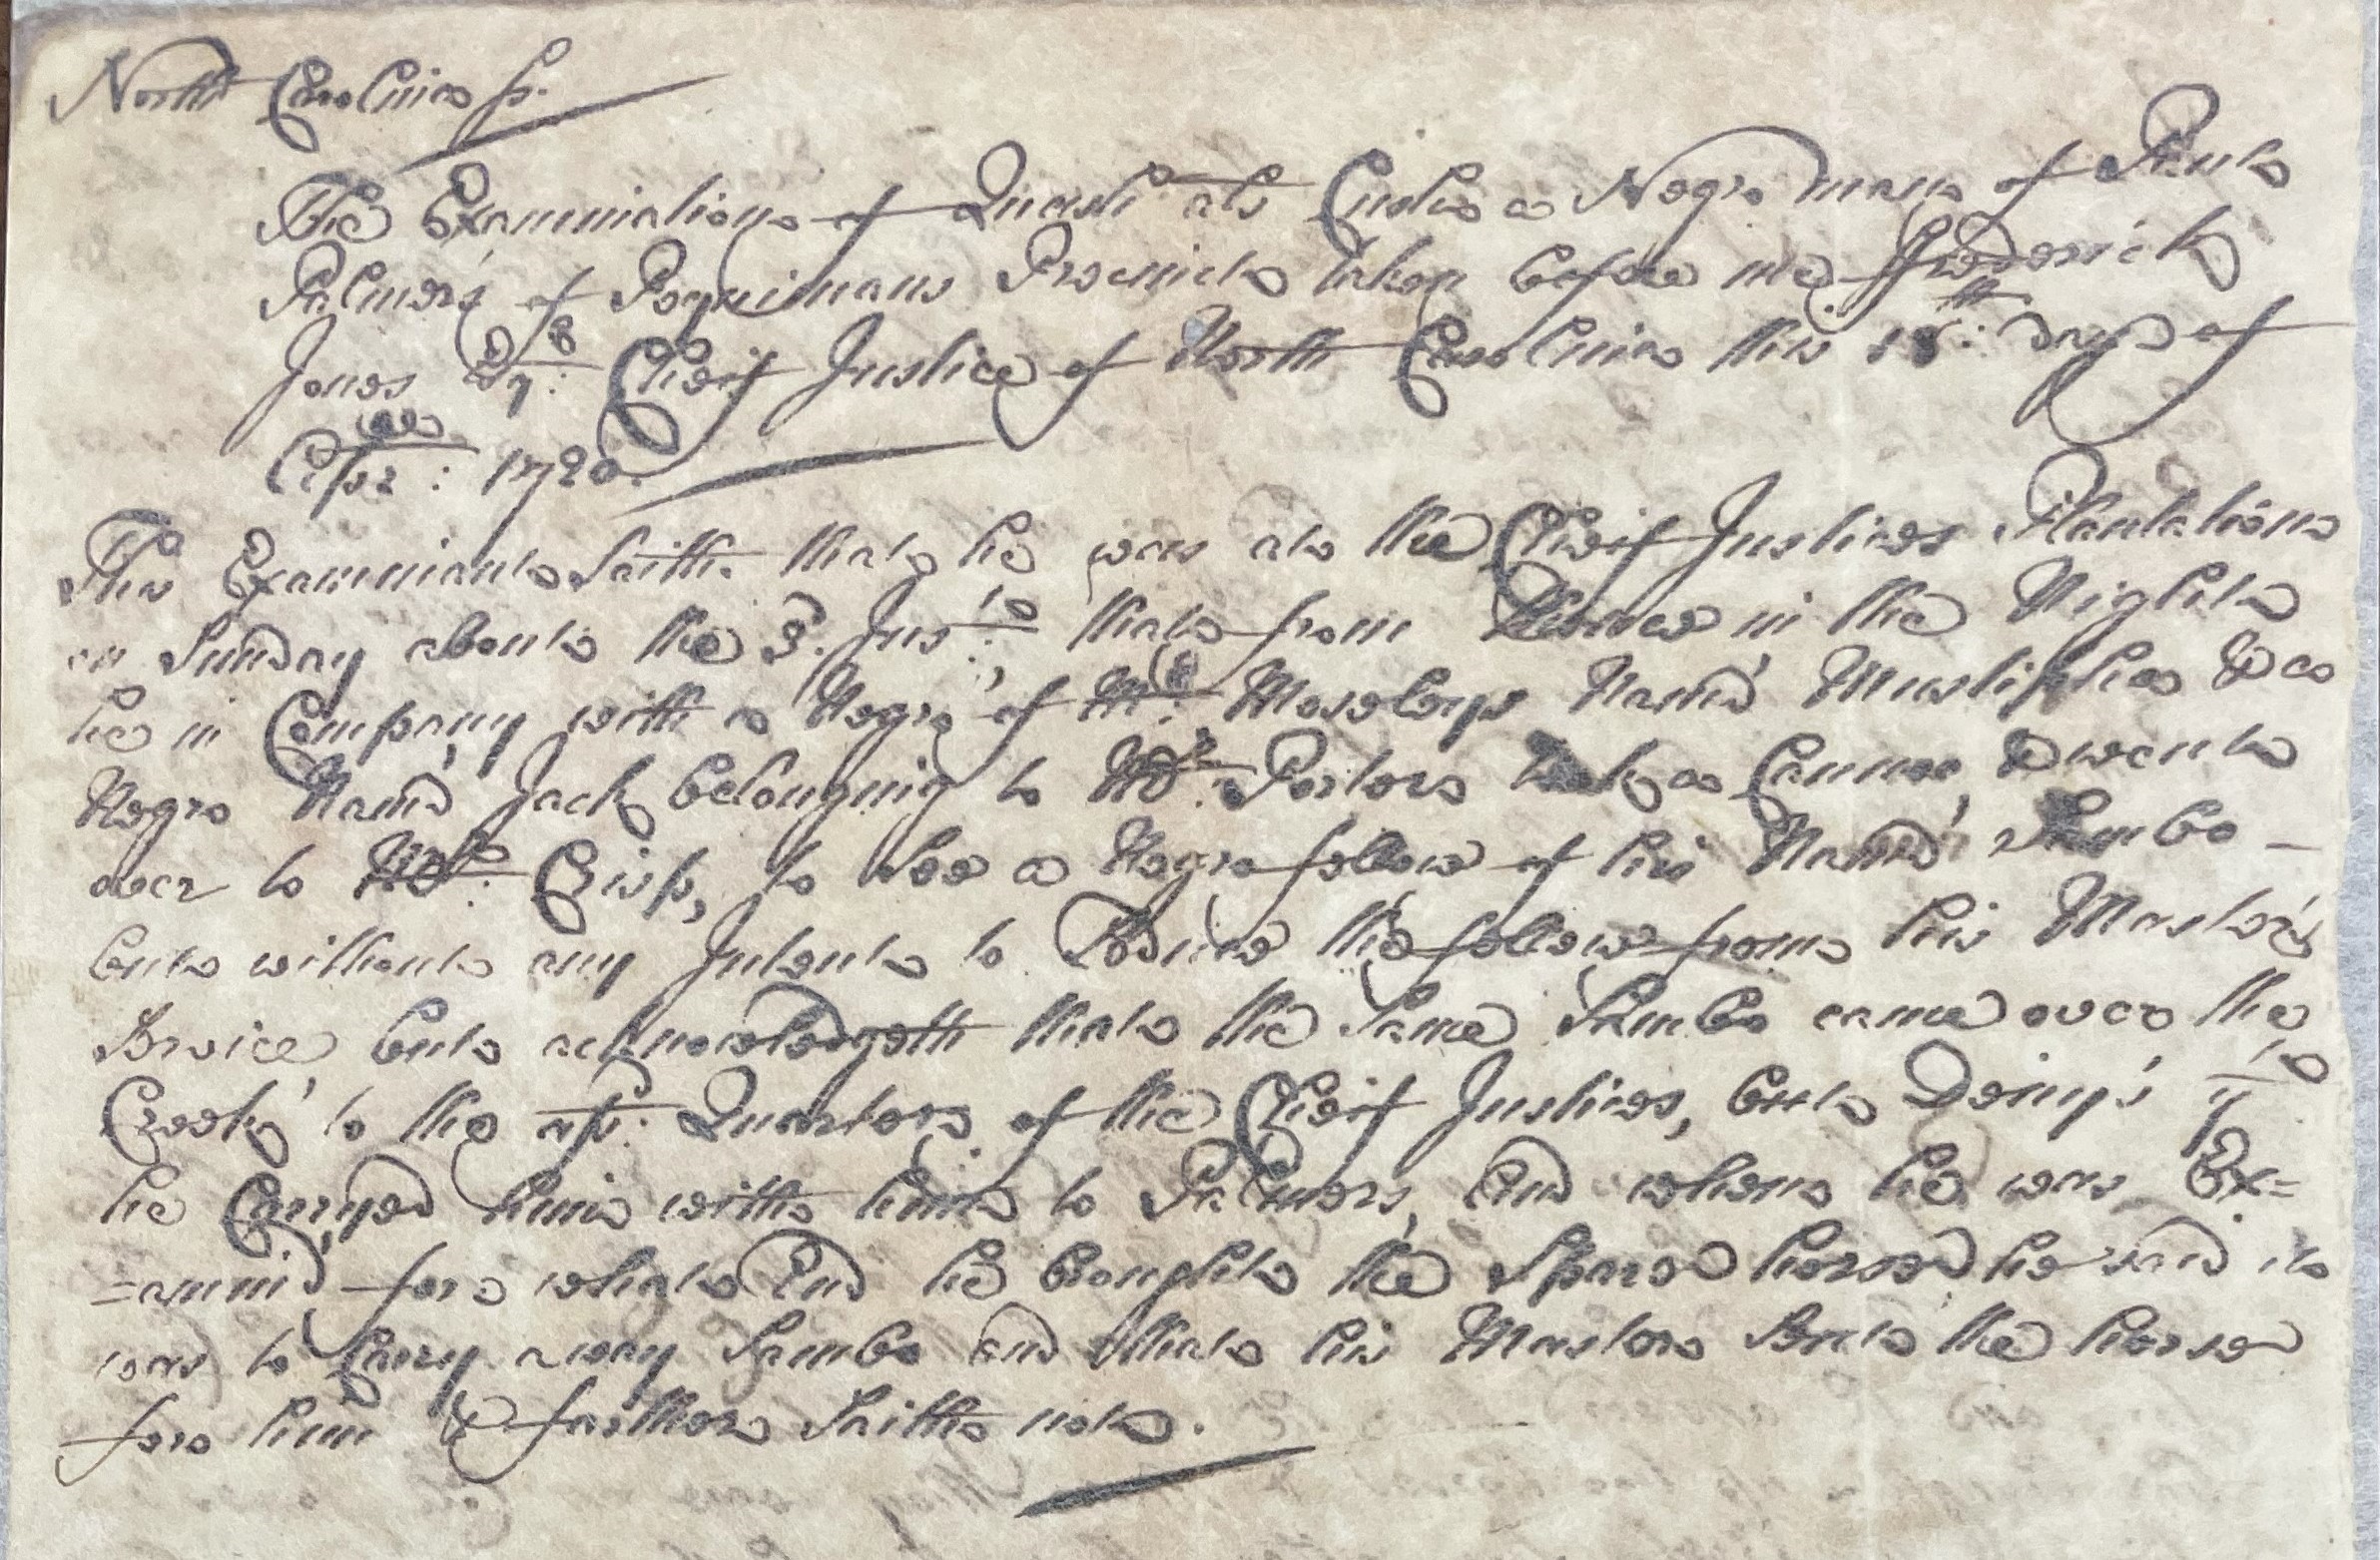 North Carolina ss.
The Examination of Quash als Cushe a Negro man of Paul
Palmer's of Pequimans Precinct taken before me Frederick
Jones Esqr: Cheif Justice of North Carolina this 18th: day of
Apr: 1720.
This Examinant Saith that he was at the Cheif Justices Plantation
on Sunday about the 3. Inst:, that from thence in the Night
he in Company with a Negro of Mr: Moseleys Nam'd Mustipha & a
Negro Nam'd Jack belonging to Mr: Porters took a Cannoe, & went
over to Mr: Crisp, to see a Negro fellow of his Nam'd Sambo -
but without any Intent to Seduce the fellow from his Master's
Service, but acknowledgeth that the Same Sambo came over the
Creek, to the afs: Quarters of the Cheif Justices, but Deny's yt
he Carryed him with him to Palmers, And when he was Ex=
=amin'd for what End he brought the Spare horse he said it
was to Carry away Sambo and that his Master Sent the horse
for him & farther Saith not.